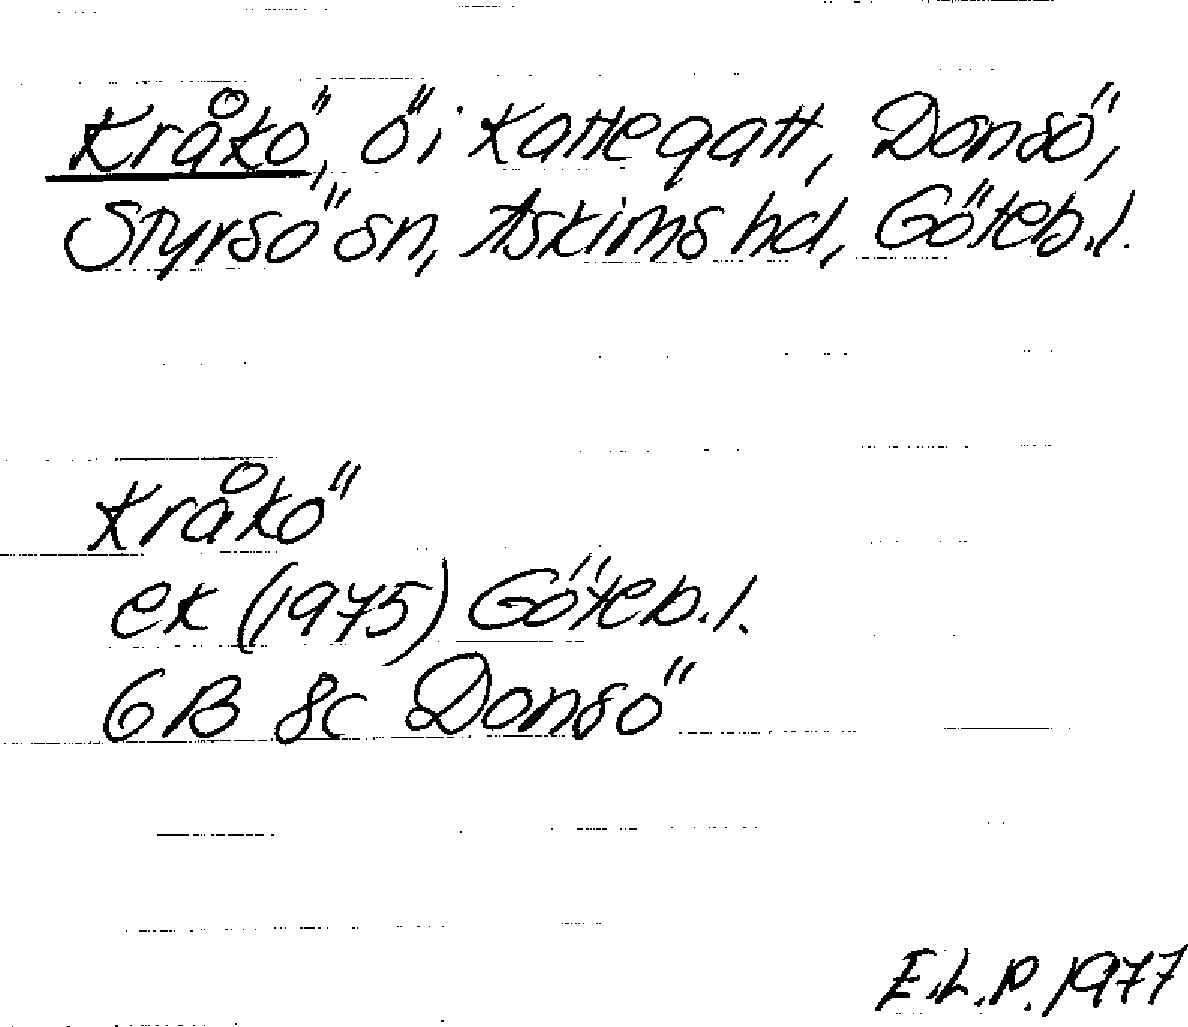 Kråkö, ö i Kattegatt, Donsö,
Styrsö sn, Askims hd, Göteb.l.
Kråkö
ek (1975) Göteb.l.
6B 8c Donsö
E.L.P. 1977